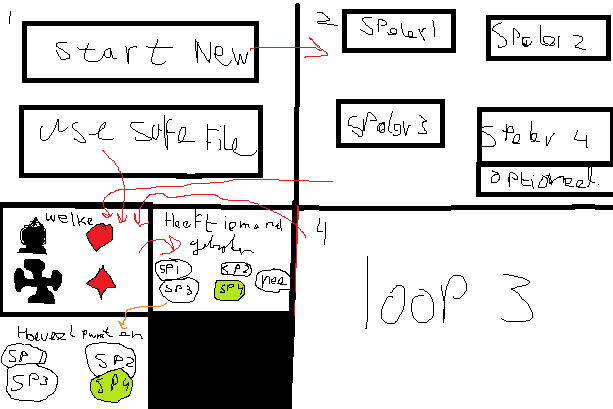 1
Start New
Use Safe File
2
Speler 1
Speler 2
Speler 3
Speler 4
optioneel
welke
Heeft iemand
SP1
SP2
SP3
SP4
nee
Hoeveel punten
SP1
SP2
SP3
SP4
4
loop 3